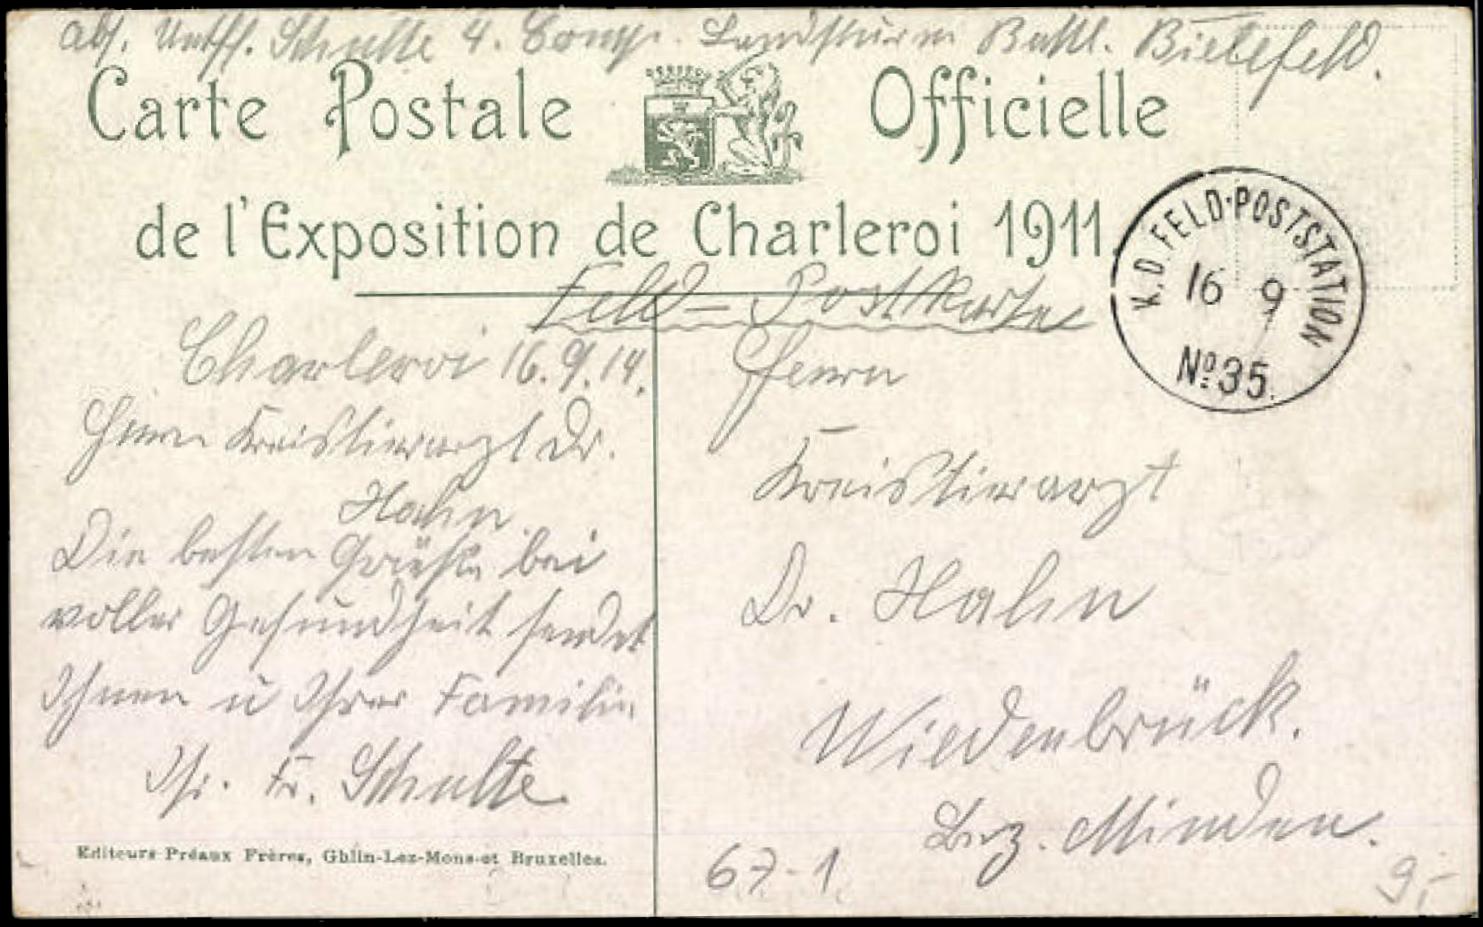 abs. Untffz. Schulte 4. Comp. Landsturm Batl. Bielefeld.
Carte Postale Officielle
de l'Exposition de Charleroi 1911.
K.D. FELD-POSTSTATION
16 9
No 35.
Feld-Postkarte
Charleroi 16.9.14.
Herrn Kreistierarzt Dr.
Hahn.
Die besten Grüße bei
voller Gesundheit sendet
Ihnen u Ihrer Familie
Ihr. Fr. Schulte
Editeurs Préaux Frères, Ghlin-Lez-Mons et Bruxelles.
Herrn
Kreistierarzt
Dr. Hahn
Wiedenbrück.
Bez. Minden.
67-1.
9,-